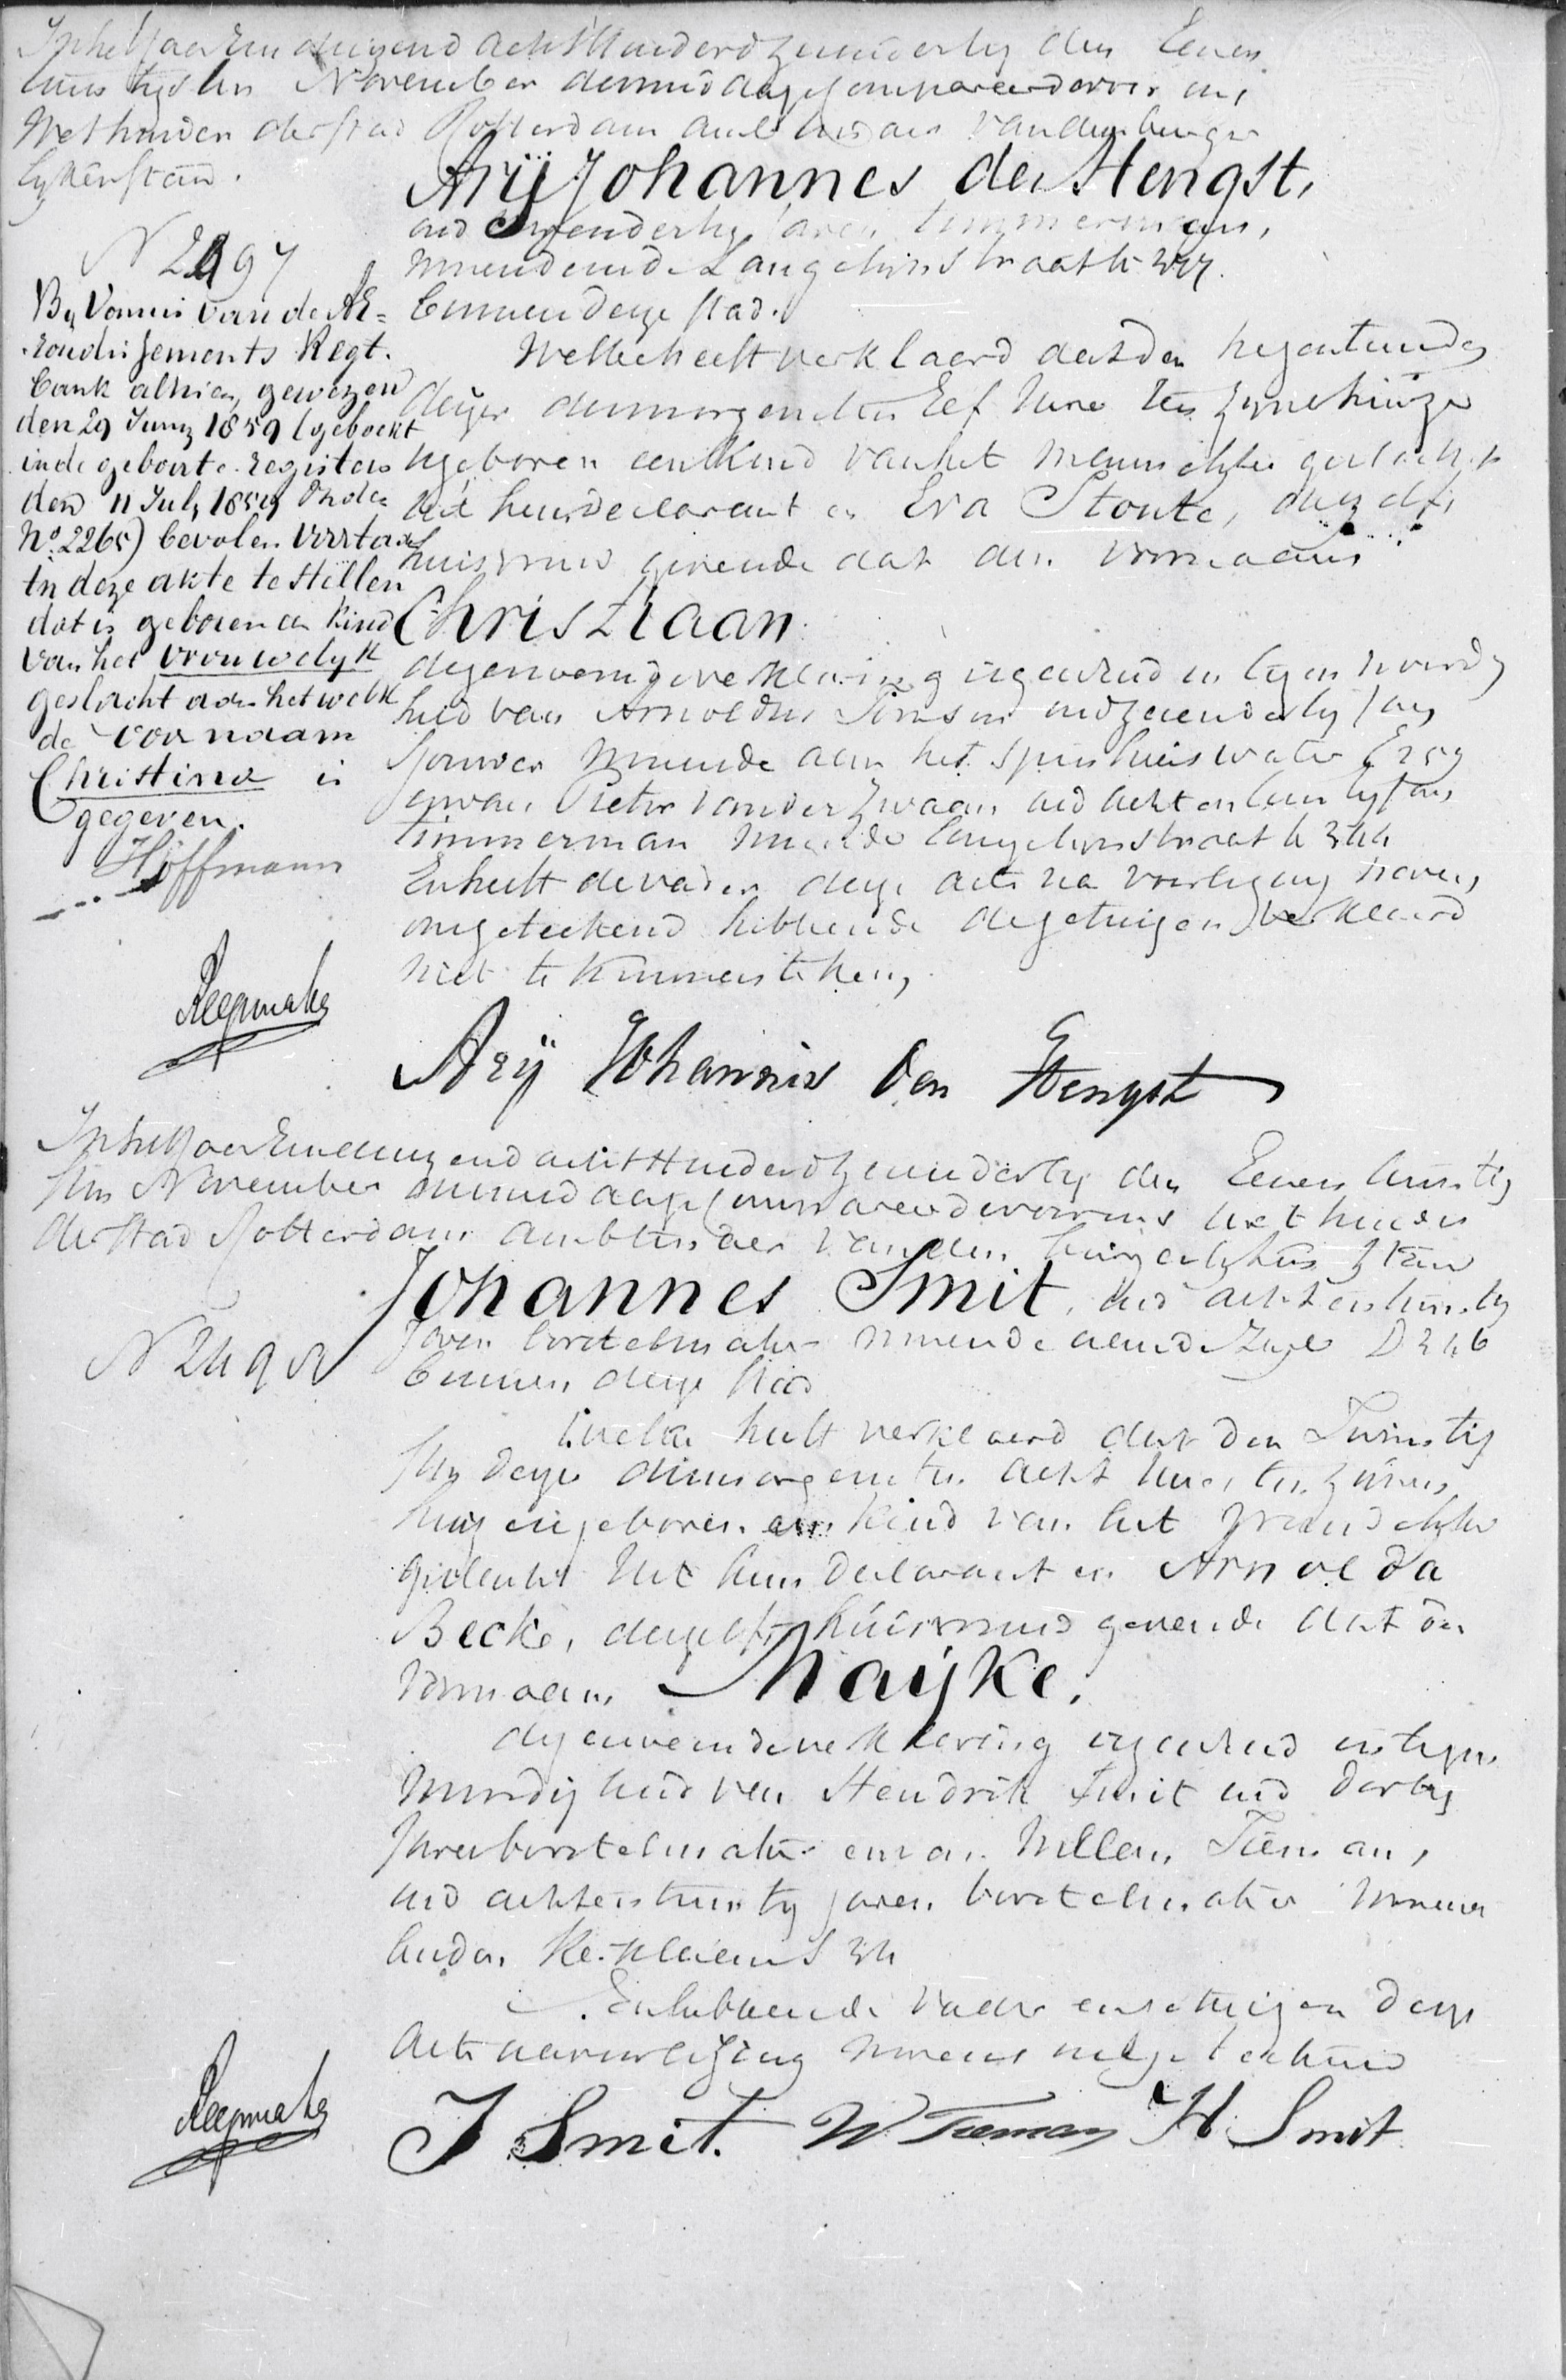 In het Jaar Een duizend acht Hunderd zeven en dertig den Eenen
twintigsten November des middags compareerde voor ons
Wethouder der stad Rotterdam ambtenaar van den burger
lyken stand.
Arÿ Johannes den Hengst,
oud en dertig Jaren timmerman,
N 2497
wonende in de Lange Lynstraat
binnen deze stad.
By Vonnis van de Ar=
rondissements Regt.
bank alhier, gewezen
den 29 Juny 1859 (geboekt
in de geboorte-registers
den 11 July 1859 Onder
No. 2265) bevolen voortaan
in deze akte te stellen
dat is geboren een kind
van het vrouwelyk
geslacht aan hetwelk
de voornaam
Christina is
gegeven.
Hoffmann
Welke heeft verklaard dat den negentienden
dezer des morgens ten Elf Ure ten zynen huize
is geboren een Kind van het mannelyke geslacht
uit hem declarant en Eva Stoute, deszelfs
huisvrouw gevende dat den voornaam
Christiaan
dezen vorenge verklaring in tegenwoordig
heid van Arnoldus Simson oud zeven en dertig Jaren
Sjouwer wonende aan het Spinhuiswater
en van Pieter van der Zwaan oud acht en twintig Jaren
timmerman wonende Lange Lynstraat
En heeft de vader deze acte na voorlezing nevens
ons geteekend hebbende de getuigen verklaard
niet te kunnen teekenen
Reepmaker
Arÿ Johannis den Hengst
In het Jaar Een duizend acht Hunderd zeven en dertig den Eenen twintig
sten November des middags Compareerde voor ons wethouder
der stad Rotterdam Ambtenaar van den burgerlyken stand
Johannes Smit, oud acht en twintig
N 2498
Jaren borstelmaker wonende aan de Zyl D 346
binnen deze stad
Welke heeft verklaard dat den Twintig
sten dezer des morgens ten acht Ure ten zynen
huize is geboren een Kind van het vrouwelyke
geslacht Uit hem Declarant en Arnolda
Becke, deszelfs huisvrouw gevende dat den
voornaam Maÿke.
dezen verklaring in tegen
woordigheid van Hendrik Smit oud dertig
Jaren borstelmaker en van Willem Tieman,
oud acht en twintig Jaren borstelmaker wonen
En hebbende vader en getuigen deze
acte na voorlezing nevens ons geteekend
Reepmaker
J Smit. W Tieman H. Smit